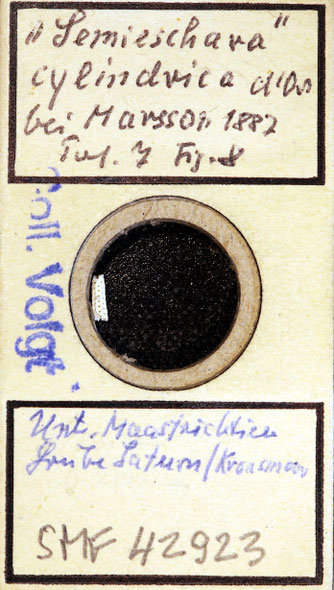 „Semieschara"
cylindrica d'Orb
bei Marsson 1887
Taf. 7 Fig. 8
Coll. Voigt
Unt. Maastrichtien
Grube Saturn/Kronsmoor
SMF 42923